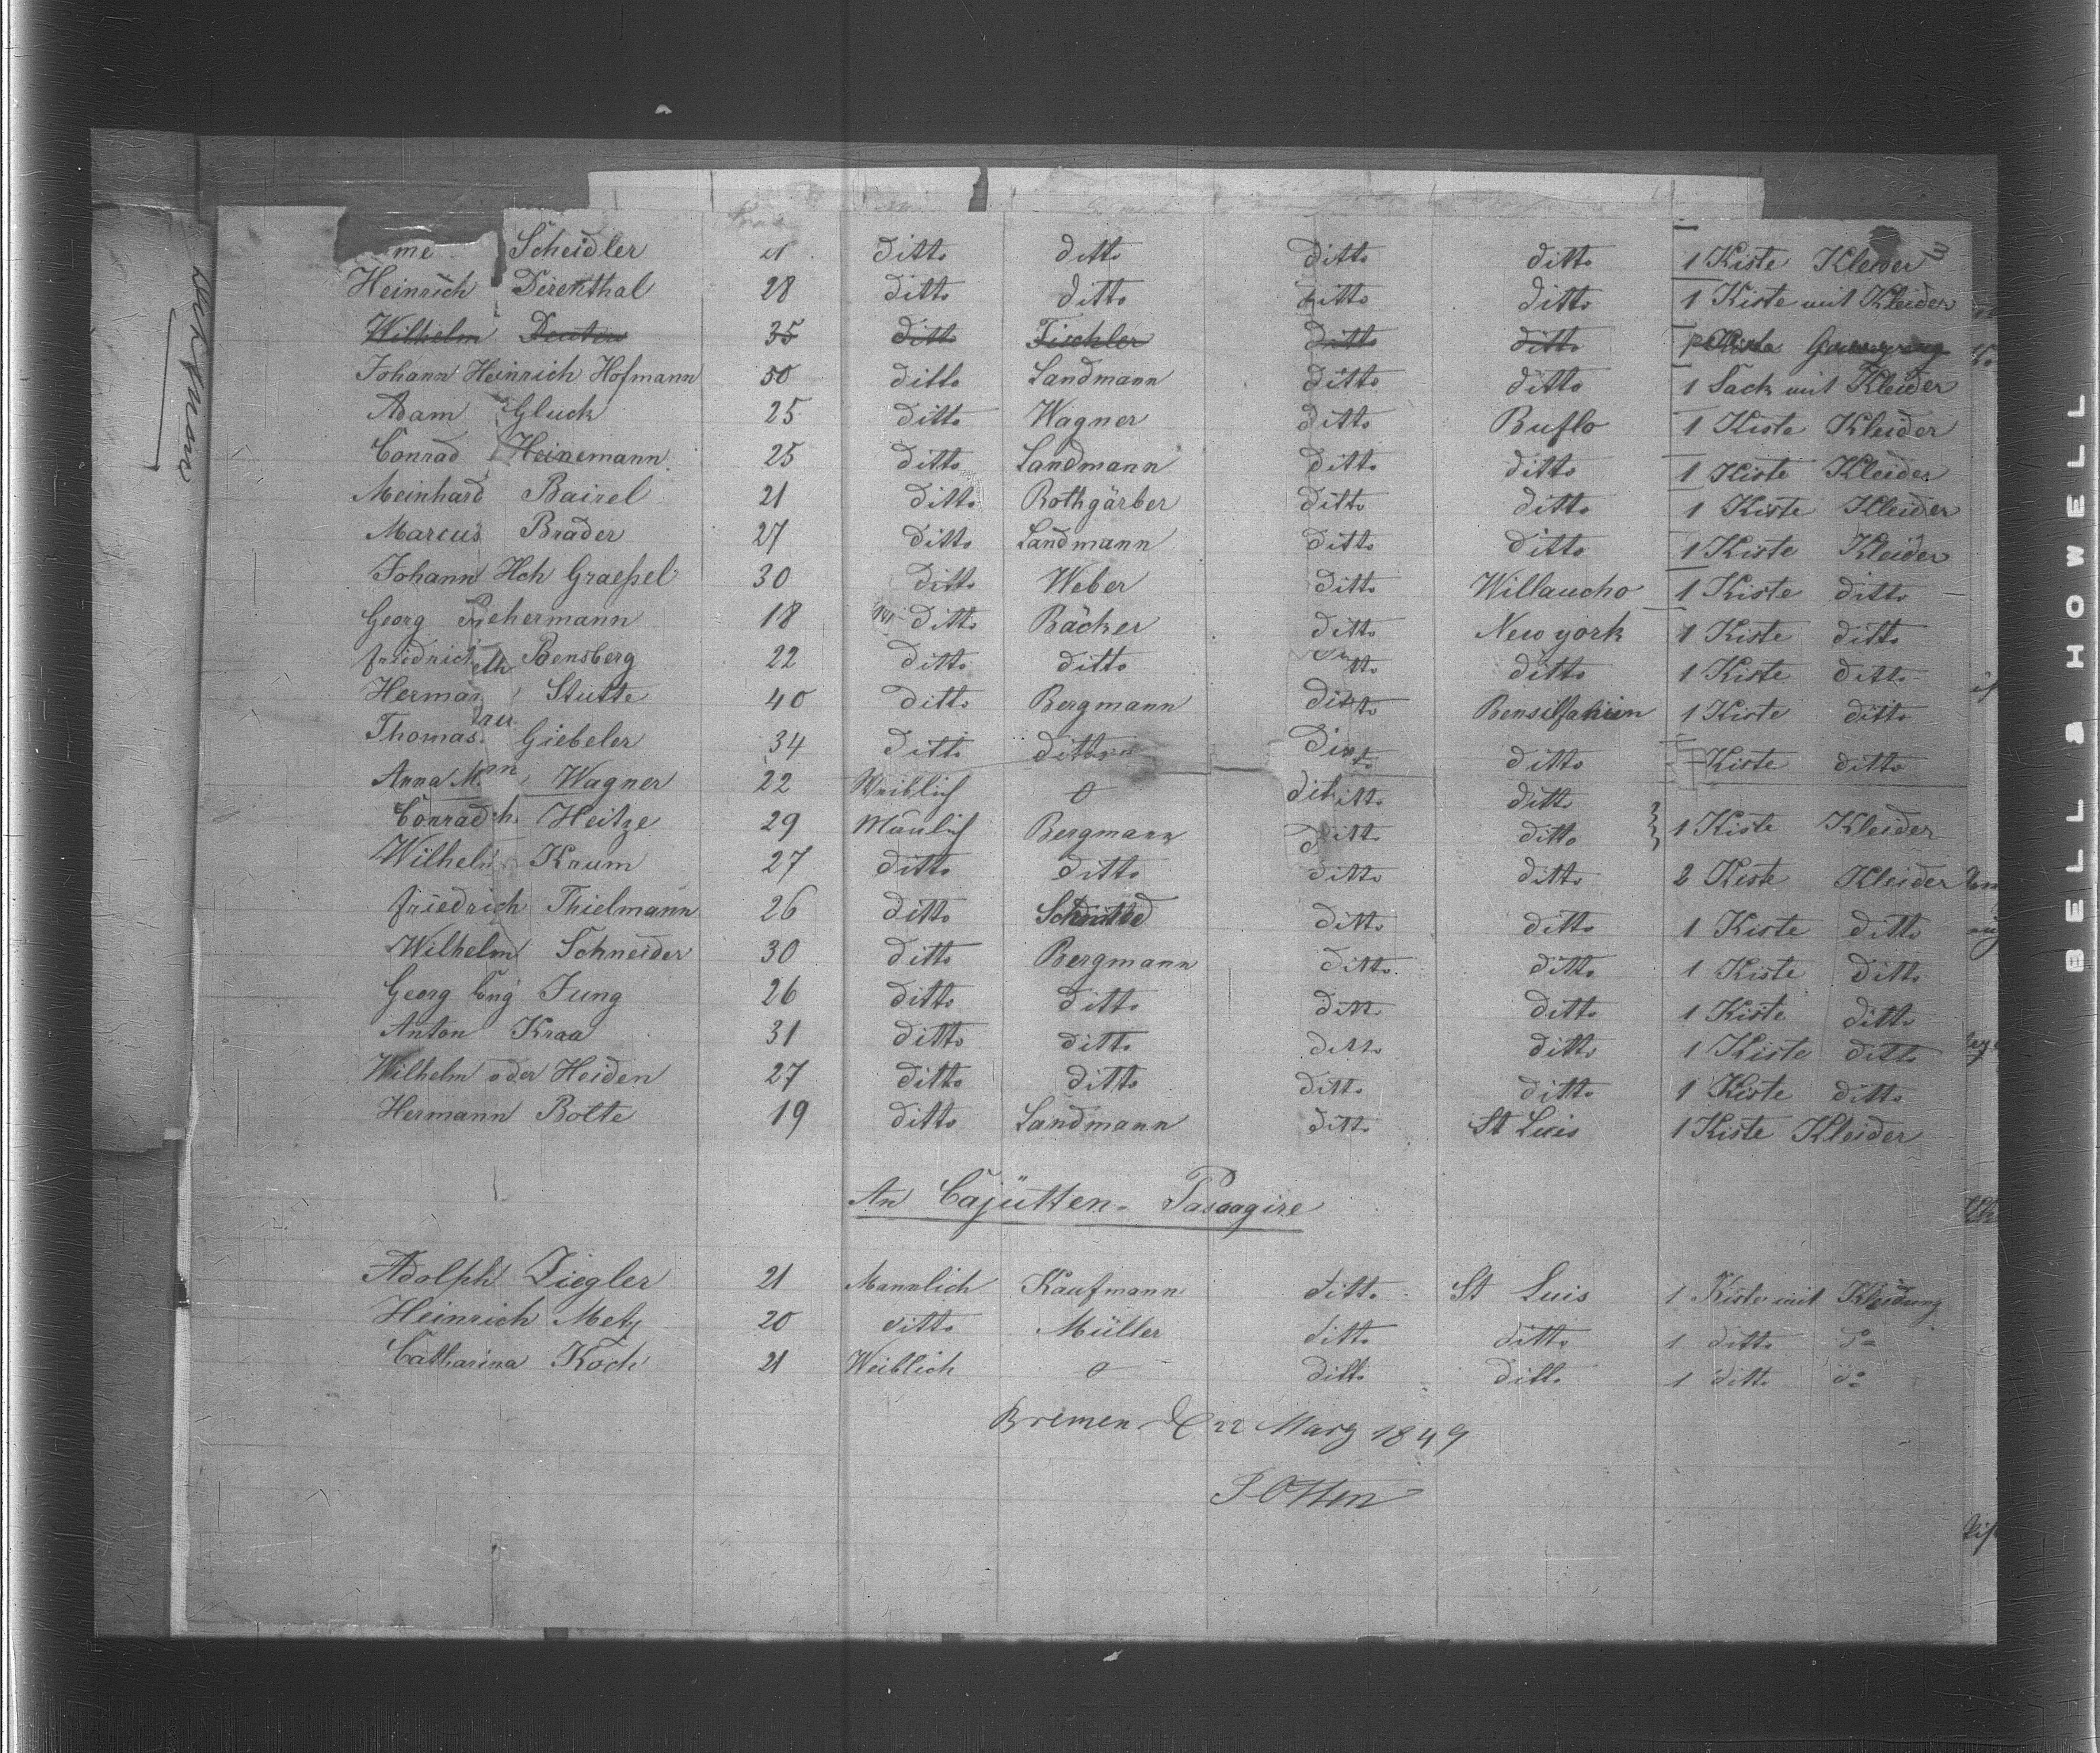 me Scheidler 21 ditto ditto ditto ditto 1 Kiste Kleider
Heinrich Direnthal 28 ditto ditto ditto ditto 1 Kiste mit Kleider
Wilhelm 35 ditto Tischler ditto ditto
Johann Heinrich Hofmann 50 ditto Landmann ditto ditto 1 Sack mit Kleider
Adam Gluck 25 ditto Wagner ditto Buflo 1 Kiste Kleider
Conrad Heinemann 25 ditto Landmann ditto ditto 1 Kiste Kleider
Meinhard Bairel 21 ditto Rothgärber ditto ditto 1 Kiste Kleider
Marcus Brader 27 ditto Landmann ditto ditto 1 Kiste Kleider
Johann Hch Graeßel 30 ditto Weber ditto Willaucho 1 Kiste ditto
Georg 18 ditto Bäcker ditto New york 1 Kiste ditto
friedrich Bensberg 22 ditto ditto ditto 1 Kiste ditto
Herman Stutte 40 ditto Bergmann ditto Bensilfanien 1 Kiste ditto
Thomas Giebeler 34 ditto ditto ditto Kiste ditto
Anna M. Wagner 22 Weiblich 0 ditto ditto
Conrad Heitze 29 Mänlich Bergmann ditto ditto 1 Kiste Kleider
Wilhelm Krum 27 ditto ditto ditto ditto 2 Kiste Kleider
friedrich Thielmann 26 ditto ditto ditto 1 Kiste ditto
Wilhelm Schneider 30 ditto Bergmann ditto ditto 1 Kiste ditto
Georg Jung 26 ditto ditto ditto ditto 1 Kiste ditto
Anton Kraa 31 ditto ditto ditto ditto 1 Kiste ditto
Wilhelm oder Heiden 27 ditto ditto ditto ditto 1 Kiste ditto
Hermann Bolte 19 ditto Landmann ditto St Luis 1 Kiste Kleider
An Cajütten- Pasaagire
Adolph Ziegler 21 Mannlich Kaufmann ditto St Luis 1 Kiste mit Kleidung
Heinrich Metz 20 ditto Müller ditto ditto 1 ditto do
Catharina Koch 21 Weiblich 0 ditto ditto 1 ditto do
Bremen d 22 Marz 1849
J Otten
BELL & HOWELL